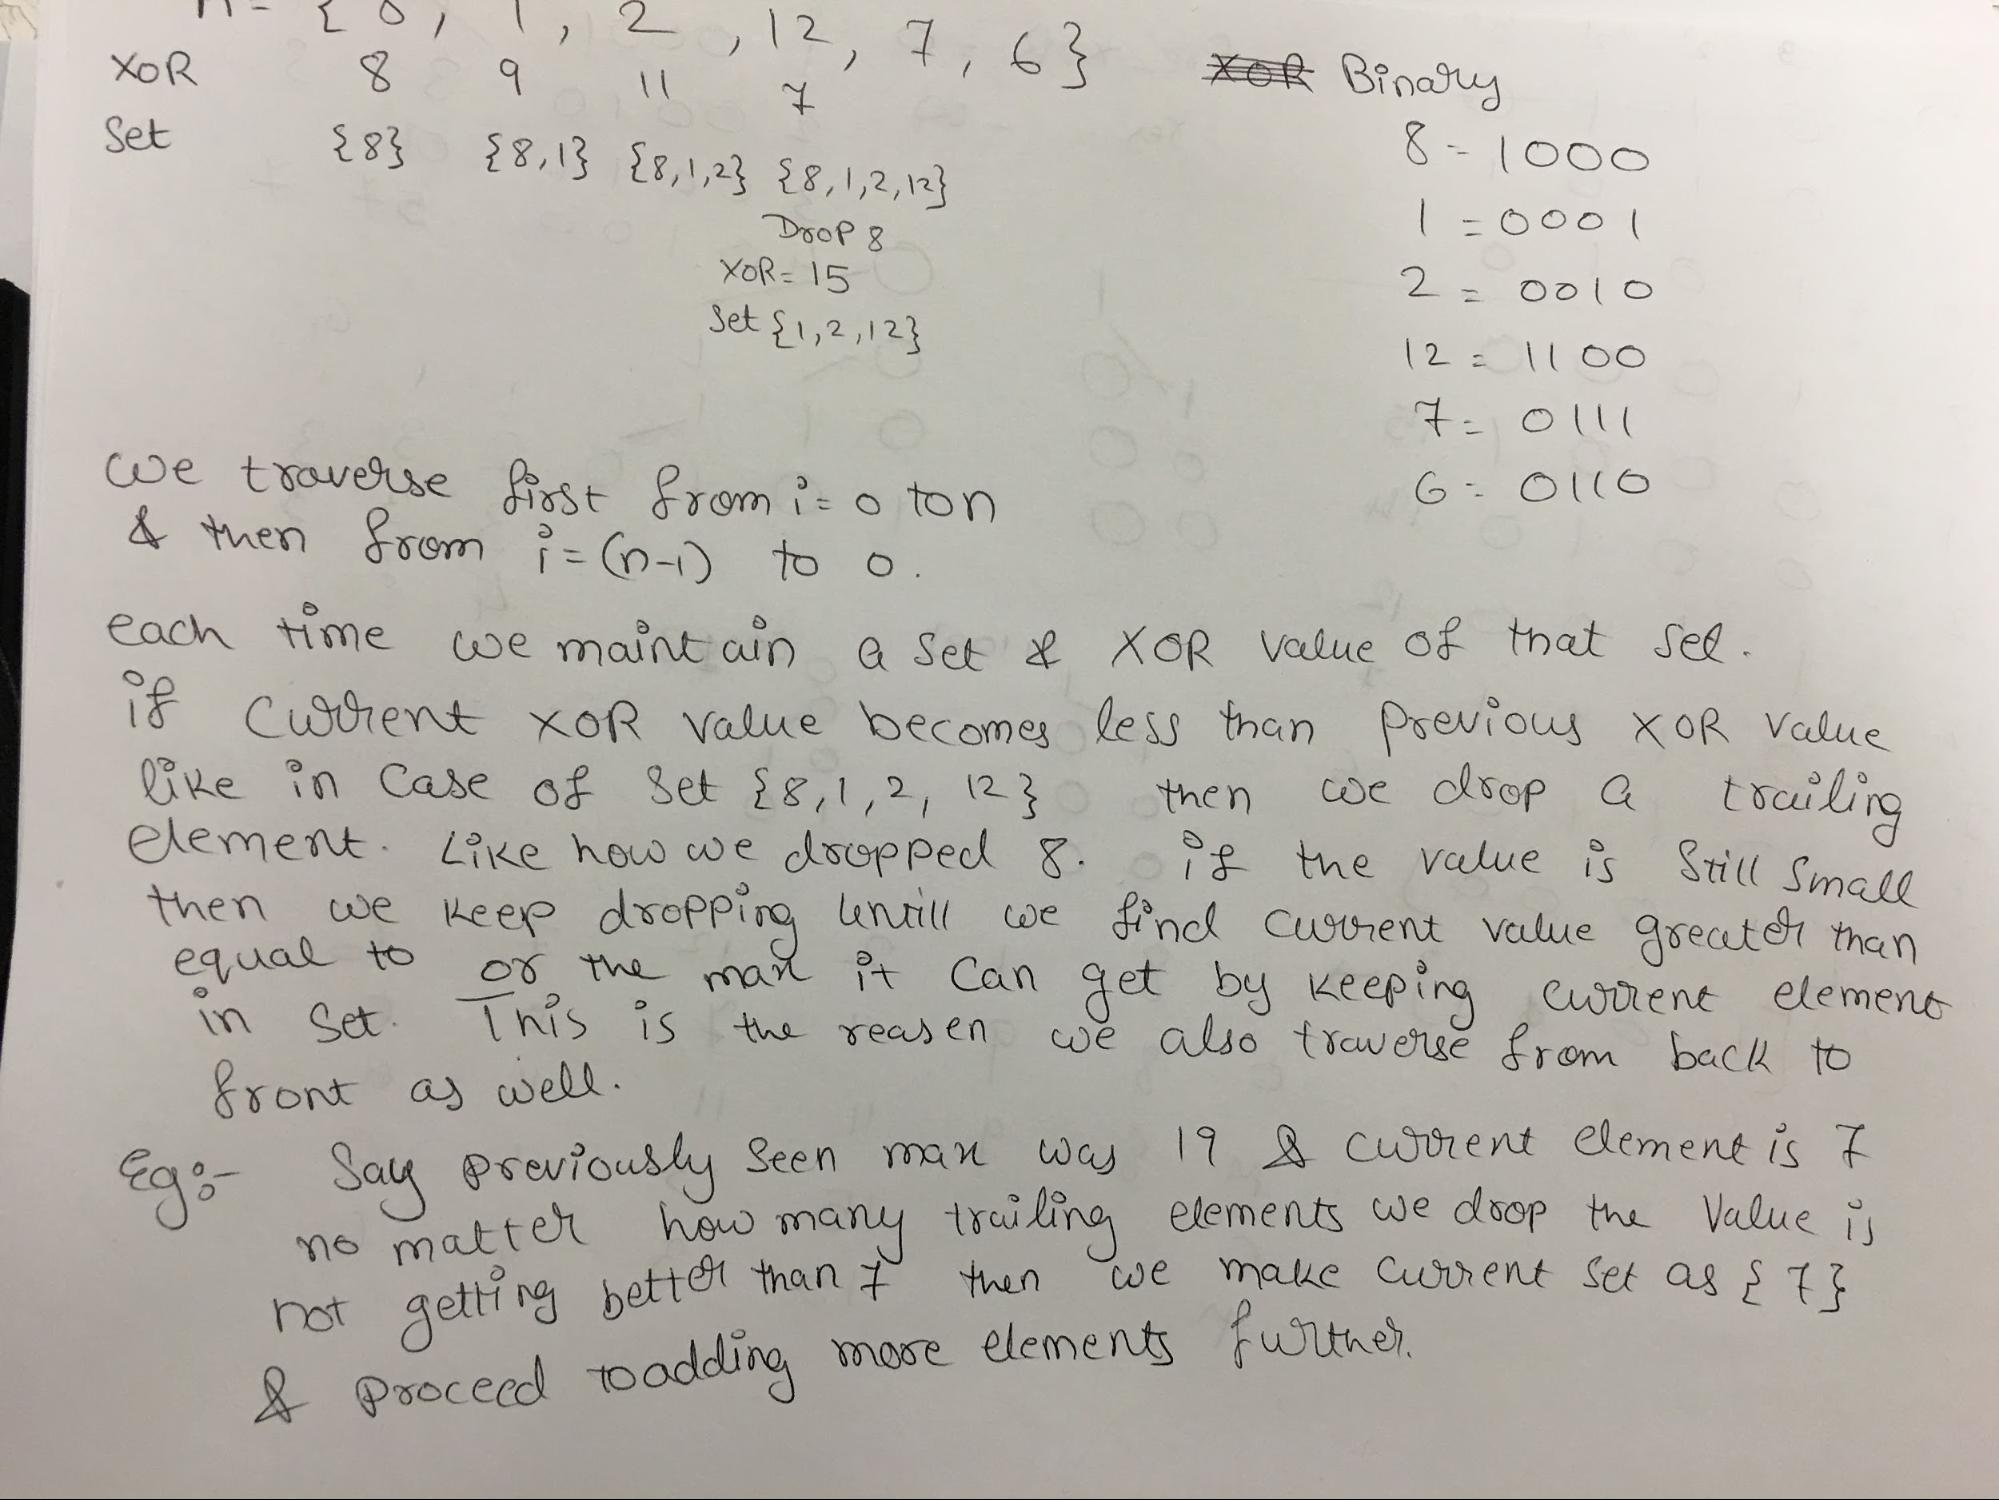 n = { 8, 1, 2, 12, 7, 6}
XOR 8 9 11 7
Set {8} {8,1} {8,1,2} {8,1,2,12}
Drop 8
XOR = 15
Set {1,2,12}
XOR Binary
8 - 1000
1 = 0001
2 = 0010
12 = 1100
7 = 0111
6 = 0110
we traverse first from i = 0 to n
& then from i = (n-1) to 0.
each time we maintain a set & XOR value of that set.
if current XOR value becomes less than previous XOR value
like in case of set {8,1,2, 12} then we drop a trailing
element. Like how we dropped 8. if the value is still small
then we keep dropping untill we find current value greater than
equal to or the max it can get by keeping current element
in set. This is the reasen we also traverse from back to
front as well.
Eg:- Say previously seen max was 19 & current element is 7
no matter how many trailing elements we drop the value is
not getting better than 7 then we make current set as {7}
& proceed to adding more elements further.